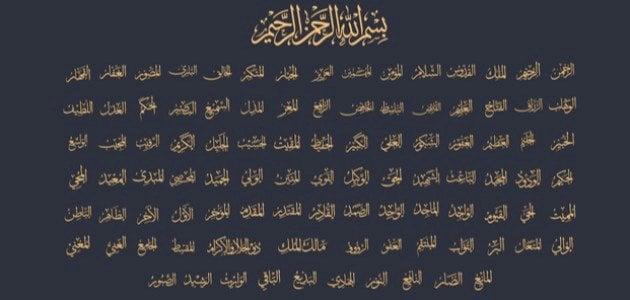 بسم الله الرحمن الرحيم
الرحمن الرحيم الملك القدوس السلام المؤمن المهيمن العزيز الجبار المتكبر الخالق البارئ المصور الغفار القهار
الوهاب الرزاق الفتاح العليم القابض الباسط الخافض الرافع المعز المذل السميع البصير الحكم العدل اللطيف
الخبير الحليم العظيم الغفور الشكور العلي الكبير الحفيظ المقيت الحسيب الجليل الكريم الرقيب المجيب الواسع
الحكيم الودود المجيد الباعث الشهيد الحق الوكيل القوي المتين الولي الحميد المحصي المبدئ المعيد المحيي
المميت الحي القيوم الواجد الماجد الواحد الصمد القادر المقتدر المقدم المؤخر الأول الآخر الظاهر الباطن
الوالي المتعال البر التواب المنتقم العفو الرؤوف مالك الملك ذو الجلال والإكرام المقسط الجامع الغني المغني
المانع الضار النافع النور الهادي البديع الباقي الوارث الرشيد الصبور